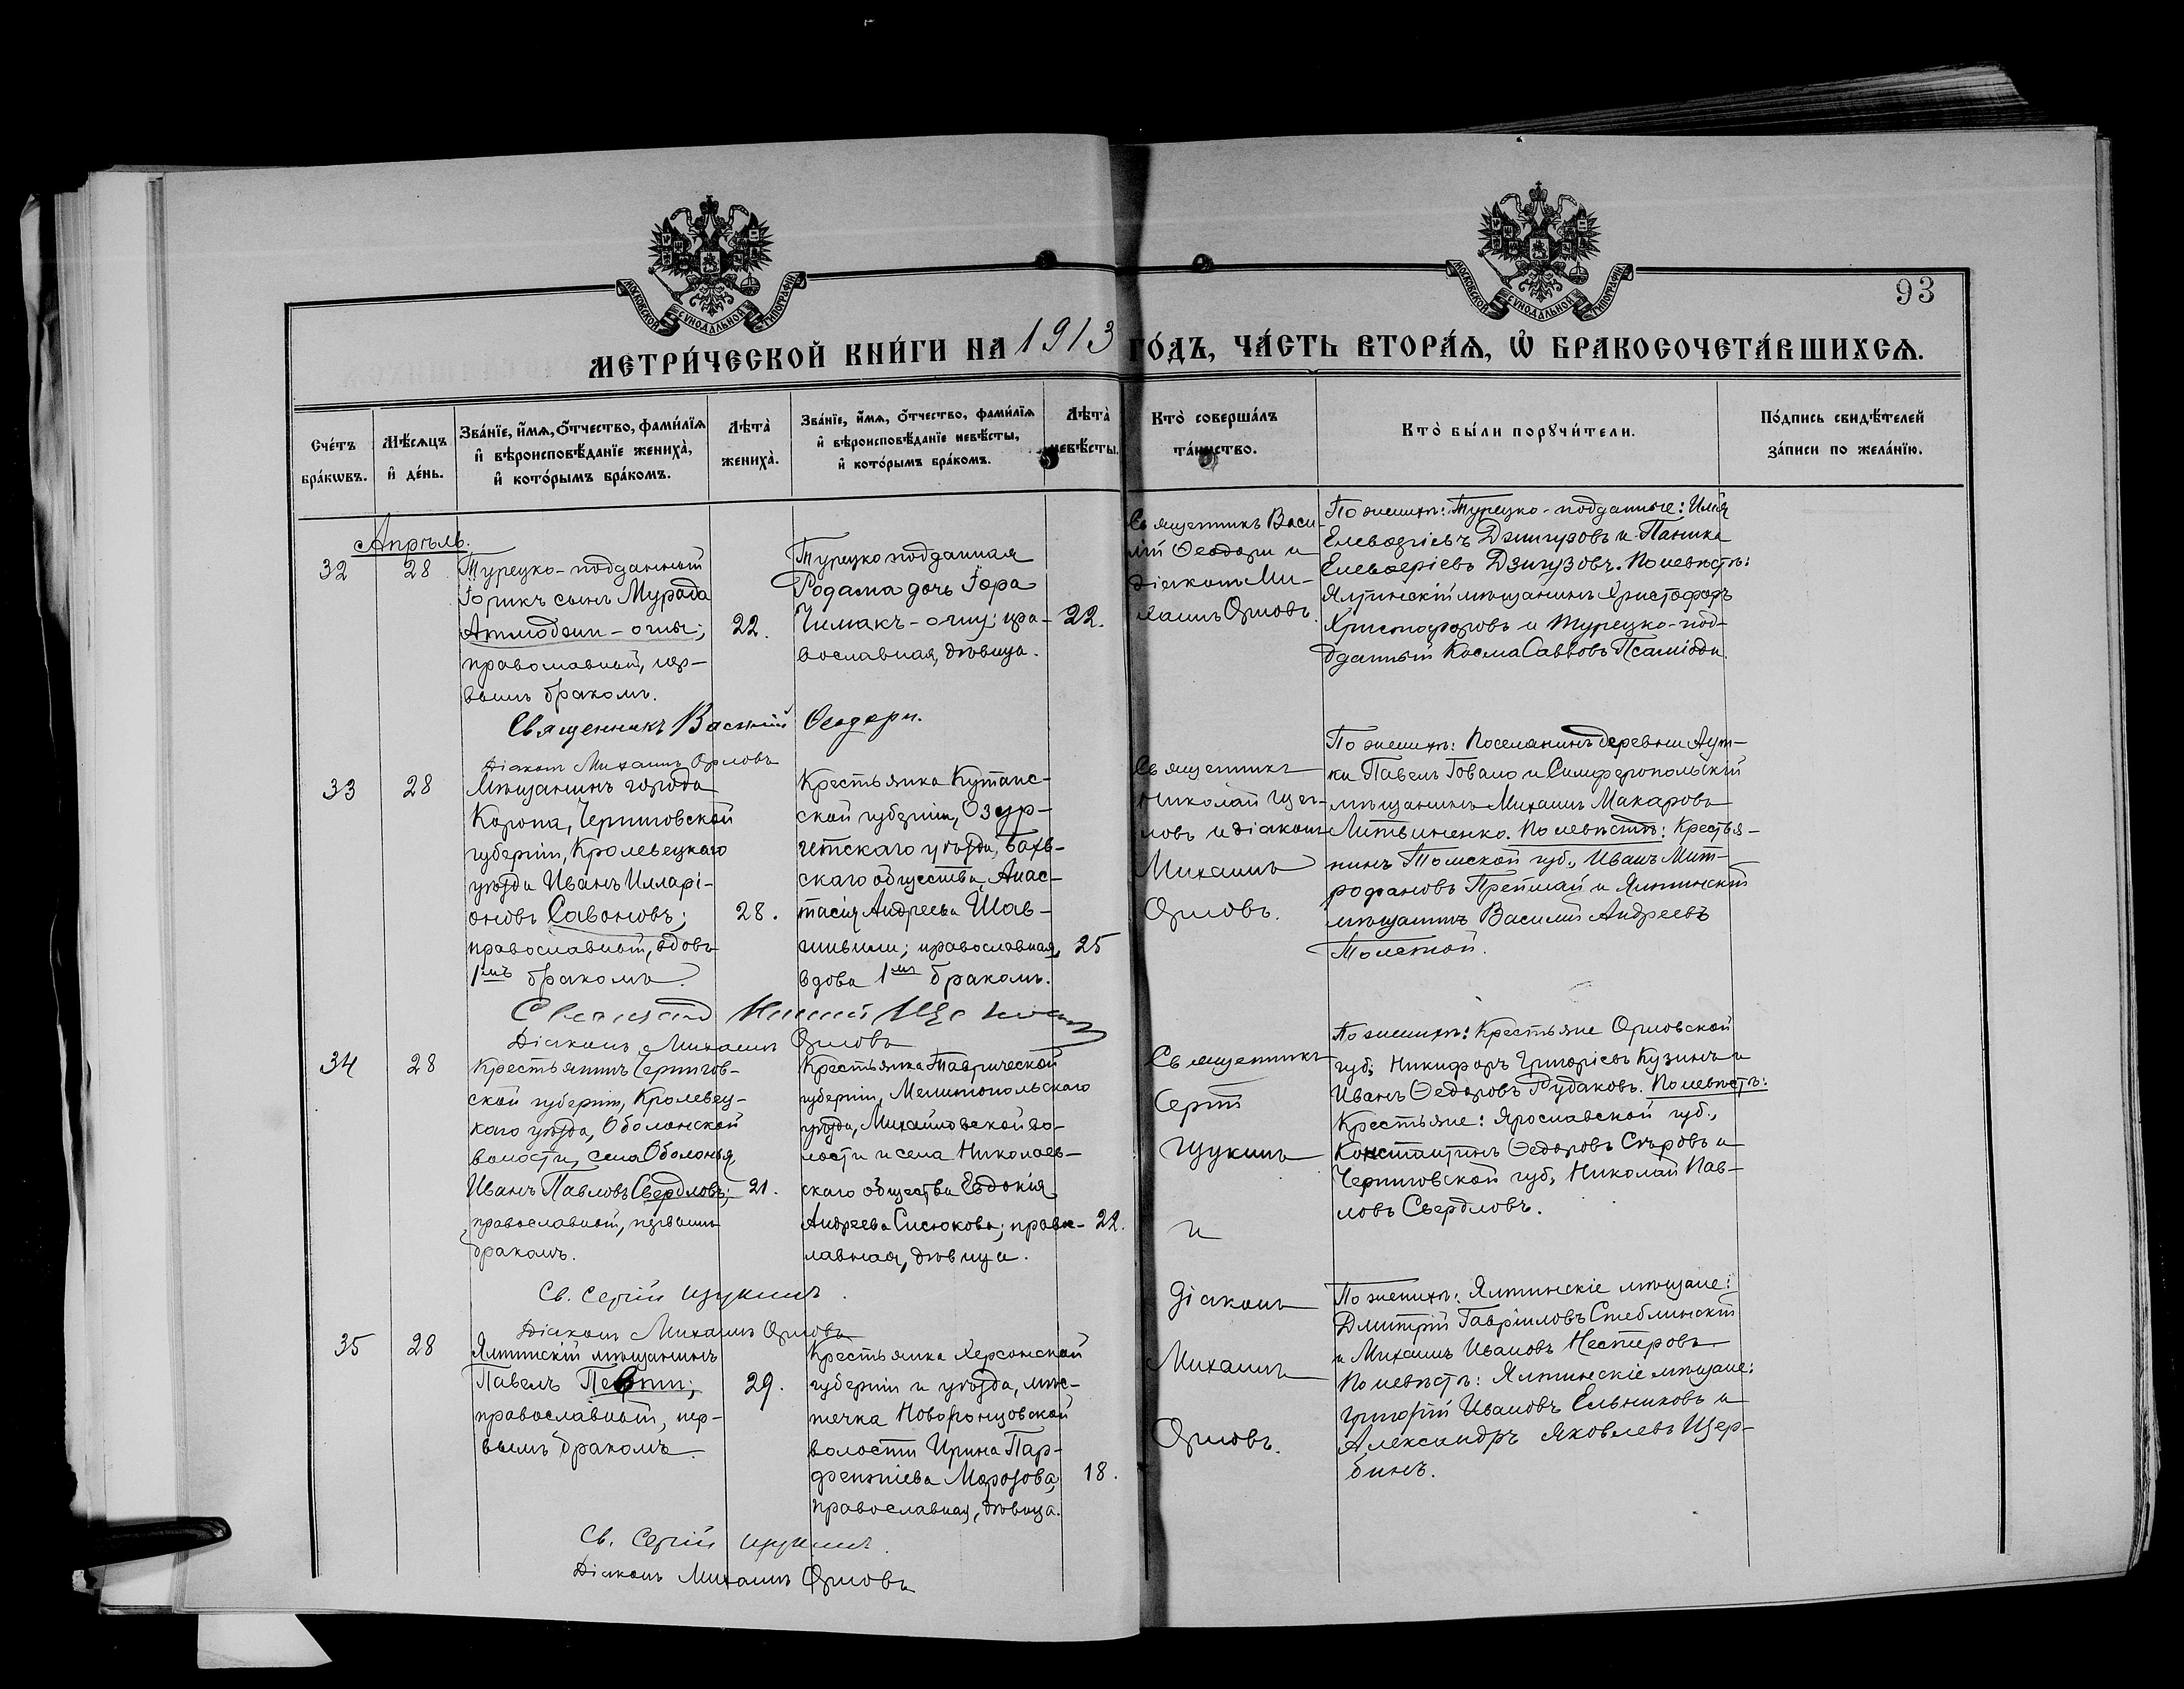 МОСКОВСКОЙ СѴНОДАЛЬНОЙ ТИПОГРАФІИ
МОСКОВСКОЙ СѴНОДАЛЬНОЙ ТИПОГРАФІИ
93
МЕТРИ́ЧЕСКОЙ КНИ́ГИ НА 1913 ГО́ДЪ, ЧА́СТЬ ВТОРА́Ѧ, Ѡ҆ БРАКОСОЧЕТА́ВШИХСѦ.
Сче́тъ
бра́кѡвъ.
Мѣ́сѧцъ
и҆ де́нь.
Зва́нїе, и҆́мѧ, ѻ҆́тчество, фами́лїѧ
и҆ вѣроисповѣ́данїе жениха̀,
и҆ кото́рымъ бра́комъ.
Лѣта̀
жениха̀.
Зва́нїе, и҆́мѧ, ѻ҆́тчество, фами́лїѧ
и҆ вѣроисповѣ́данїе невѣ́сты,
и҆ кото́рымъ бра́комъ.
Лѣта̀
невѣ́сты.
Кто̀ соверша́лъ
та́инство.
Кто̀ бы́ли порꙋчи́тели.
По́дпись свидѣ́телей
за́писи по жела́нїю.
Апрѣль.
32
28
Турецко-подданный
Іорикъ сынъ Мурада
православный, пер-
вымъ бракомъ.
22.
Турецкоподданная
Родама дочь Іора
Чимакъ-оглу; пра-
вославная, дѣвица.
22.
Священникъ Васи-
лій Ѳеодори и
діаконъ Ми-
хаилъ Орловъ.
По женихѣ: Турецко-подданные: Илія
Елевѳеріевъ Дзигузовъ и Паника
Елевѳеріевъ Дзигузовъ. По невѣстѣ:
Ялтинскій мѣщанинъ Христофоръ
Христофоровъ и Турецко-под-
данный Косма Саввовъ Псаміади.
Священникъ Василій Ѳеодори.
Діаконъ Михаилъ Орловъ
33
28
Мѣщанинъ города
Коропа, Черниговской
губерніи, Кролевецкаго
уѣзда Иванъ Илларі-
оновъ Савоновъ;
православный, вдовъ
1мъ бракомъ.
28.
Крестьянка Кутаис-
ской губерніи, Озур-
гетскаго уѣзда, Бахв-
скаго общества, Анас-
тасія Андреева Шав-
гишвили; православная,
вдова 1мъ бракомъ.
25
Священникъ
Николай Щег-
ловъ и діаконъ
Михаилъ
Орловъ.
По женихѣ: Поселянинъ деревни Аут-
ки Павелъ Говало и Симферопольскій
мѣщанинъ Михаилъ Макаровъ
Литвиненко. По невѣстѣ: Крестья-
нинъ Томской губ., Иванъ Мит-
рофановъ Претлай и Ялтинскій
мѣщанинъ Василій Андреевъ
Толстой.
Діаконъ Михаилъ Орловъ
34
28
Крестьянинъ Чернигов-
ской губерніи, Кролевец-
каго уѣзда, Оболонской
волости, села Оболонья,
Иванъ Павловъ Свердловъ;
православный, первымъ
бракомъ.
21.
Крестьянка Таврической
губерніи, Мелитопольскаго
уѣзда, Михайловской во-
лости и села Николаев-
скаго общества Евдокія
Андреева Сисюкова; правос-
лавная, дѣвица.
22.
Священникъ
Сергій
Щукинъ
и
діаконъ
Михаилъ
Орловъ.
По женихѣ: Крестьяне Орловской
губ., Никифоръ Григоріевъ Кузинъ и
Иванъ Ѳедоровъ Рудаковъ. По невѣстѣ:
Крестьяне: Ярославской губ.,
Константинъ Ѳедоровъ Сѣровъ и
Черниговской губ., Николай Пав-
ловъ Свердловъ.
Св. Сергій Щукинъ.
Діаконъ Михаилъ Орловъ
35
28
Ялтинскій мѣщанинъ
Павелъ
православный, пер-
вымъ бракомъ.
29.
Крестьянка Херсонской
губерніи и уѣзда, мѣс-
течка Нововоронцовской
волости Ирина Пар-
фентіева Морозова,
православная, дѣвица.
18.
По женихѣ: Ялтинскіе мѣщане:
Дмитрій Гавріиловъ Стеблинскій
и Михаилъ Ивановъ Нестеровъ.
По невѣстѣ: Ялтинскіе мѣщане:
Григорій Ивановъ Ельниковъ и
Александръ Яковлевъ Щер-
бинъ.
Св. Сергій Щукинъ.
Діаконъ Михаилъ Орловъ